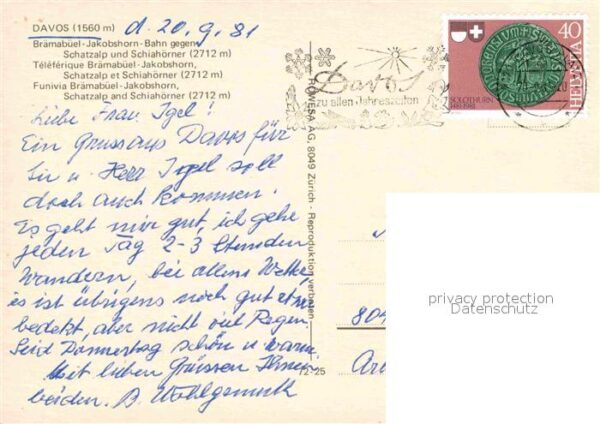 DAVOS (1560 m) d. 20.9.81
Brämabüel-Jakobshorn-Bahn gegen
Schatzalp und Schiahörner (2712 m)
Téléférique Brämabuel-Jakobshorn,
Schatzalp et Schiahörner (2712 m)
Funivia Brämabuel-Jakobshorn,
Schatzalp and Schiahörner (2712 m)
Liebe Frau Igel!
Ein Gruss aus Davos für
Sie u. Herr Igel soll
doch auch kommen.
Es geht mir gut, ich gehe
jeden Tag 2-3 Stunden
wandern, bei allem Wetter,
es ist übrigens noch gut
bedekt, aber nicht viel Regen.
Seid Donnerstag schön u. warm.
Mit lieben Grüssen Ihnen
beiden. B. Wohlgemuth
ROWESA AG, 8049 Zürich - Reproduktion verboten
72-25
Davos
zu allen Jahreszeiten
40
HELVETIA
SOLOTHURN
1481-1981
privacy protection
Datenschutz
804